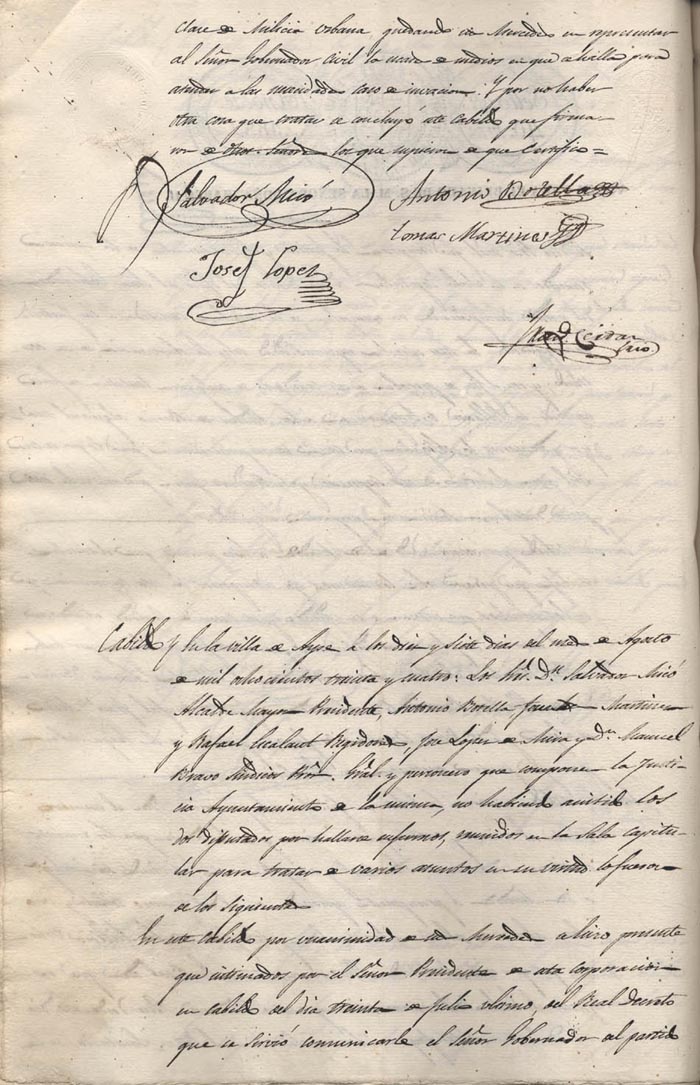 clase de Milicia Urbana quedando sus Mercedes en representar
al Señor Gobernador Civil la de medios en que se halla para
atender a las necesidades caso de invacion. Y por no haber
otra cosa que tratar se concluyó este Cabildo que firma
ron de dhos. Señores los que supieron de que Certifico=
Salvador Miró
Antonio Botella
tomas Martines
Josef Lopez
Cabildo
Y En la villa de Aspe a los diez y siete dias del mes de Agosto
de mil ochocientos treinta y cuatro: Los Sres. Dn. Salvador Miró
Alcalde Mayor Presidente, Antonio Botella Martinez
y Rafael Regidores, Jose Lopez de Miro y Dn. Manuel
Bravo Sindicos Pror. Gral. y personero que componen la Justi
cia Ayuntamiento de la misma, no habiendo asistido los
dos diputados por hallarse enfermos, reunidos en la Sala Capitu
lar para tratar de varios asuntos en su virtud lo fueron
de los Siguientes
En este Cabildo por unanimidad de sus Mercedes se hizo presente
que enterados por el Señor Presidente de esta corporacion
en cabildo del dia treinta de Julio ultimo, del Real Decreto
que se sirvió comunicarle el Señor Gobernador del partido